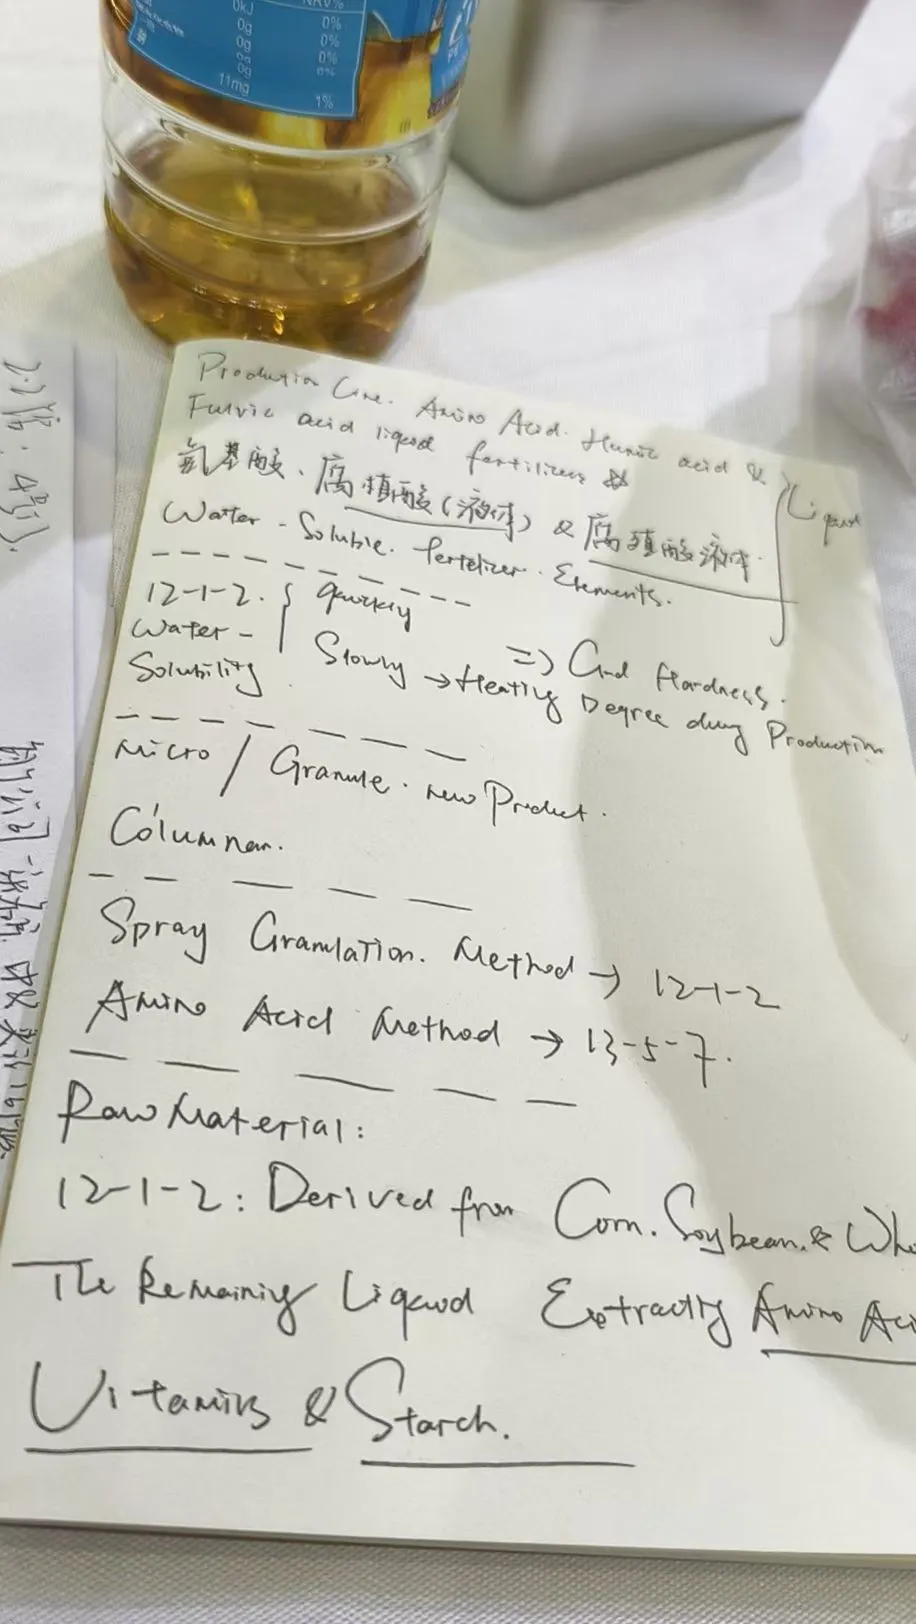 NRV%
0kJ
0%
0g
0%
0g
0%
0g
0%
0g
11mg
1%
Production Line. Amino Acid. Humic acid &
Fulvic acid liquid fertilizers
氨基酸、腐植酸(液体) & 腐殖酸液体
Liquid
Water-Soluble. fertelizer. Elements.
12-1-2. { quickly
Water-
Solubility
Slowly → Heating Degree during Production
=> Hardness.
Micro / Granule. new Product.
Columnar.
Spray Granulation. Method → 12-1-2
Amino Acid Method → 13-5-7.
Raw Material:
12-1-2: Derived from Corn. Soybean. & Whe
The Remaining Liquid Extracting Amino Aci
Vitamins & Starch.